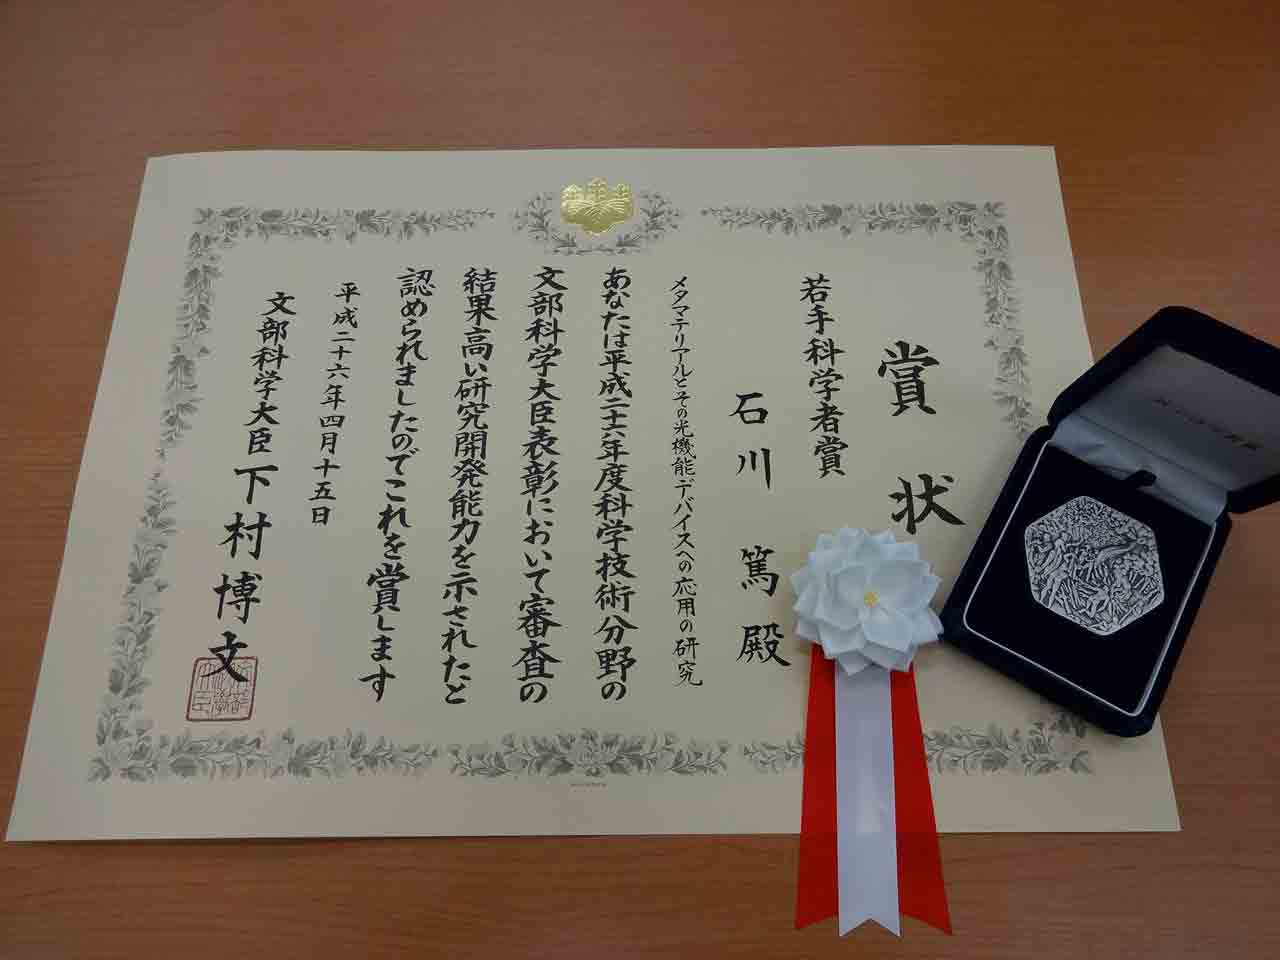 賞状
若手科学者賞
石川篤殿
メタマテリアルとその光機能デバイスへの応用の研究
あなたは平成二十六年度科学技術分野の
文部科学大臣表彰において審査の
結果高い研究開発能力を示されたと
認められましたのでこれを賞します
平成二十六年四月十五日
文部科学大臣下村博文